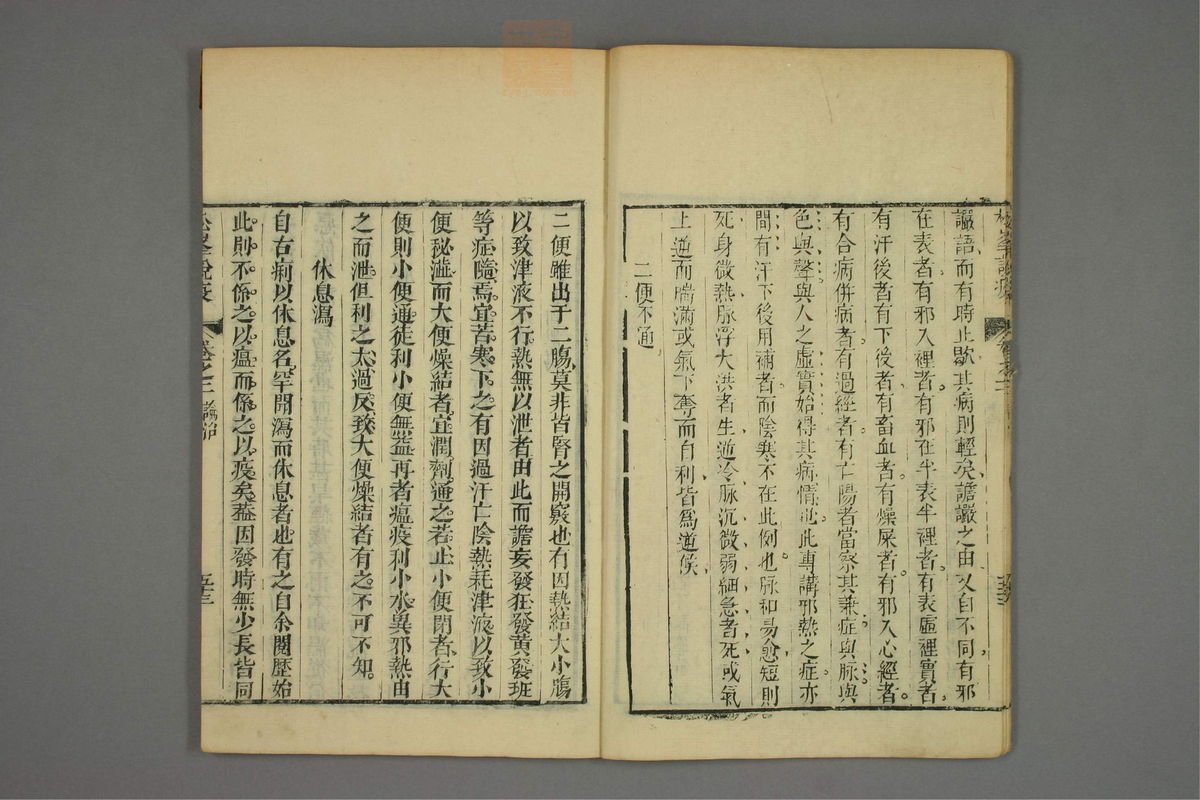 讝語而有時止歇其病則輕矣譫讝之由又自不同有邪
在表者有邪入裡者有邪在半表半裡者有表虛裡實者
有汗後者有下後者有畜血者有燥屎者有邪入心經者
有合病併病者有過經者有亡陽者當察其兼症與脉與
色與聲與人之虛實始得其病情也此專講邪熱之症亦
間有汗下後用補者而陰寒不在此例也脉和易愈短則
死身微熱脉浮大洪者生逆冷脉沉微弱細急者死或氣
上逆而喘滿或氣下奪而自利皆爲逆候
二便不通
二便雖出于二腸莫非皆腎之開竅也有因熱結大小腸
以致津液不行熱無以泄者由此而譫妄發狂發黄發班
等症隨焉宜苦寒下之有因過汗亡陰熱耗津液以致小
便秘澁而大便燥結者宜潤劑通之若止小便閉者行大
便則小便通徒利小便無益再者瘟疫利小水異邪熱由
之而泄但利之太過反致大便燥結者有之不可不知
休息瀉
自古痢以休息名罕聞瀉而休息者也有之自余閱歷始
此則不係之以瘟而係之以疫矣葢因發時無少長皆同
松峯說疫
卷之三